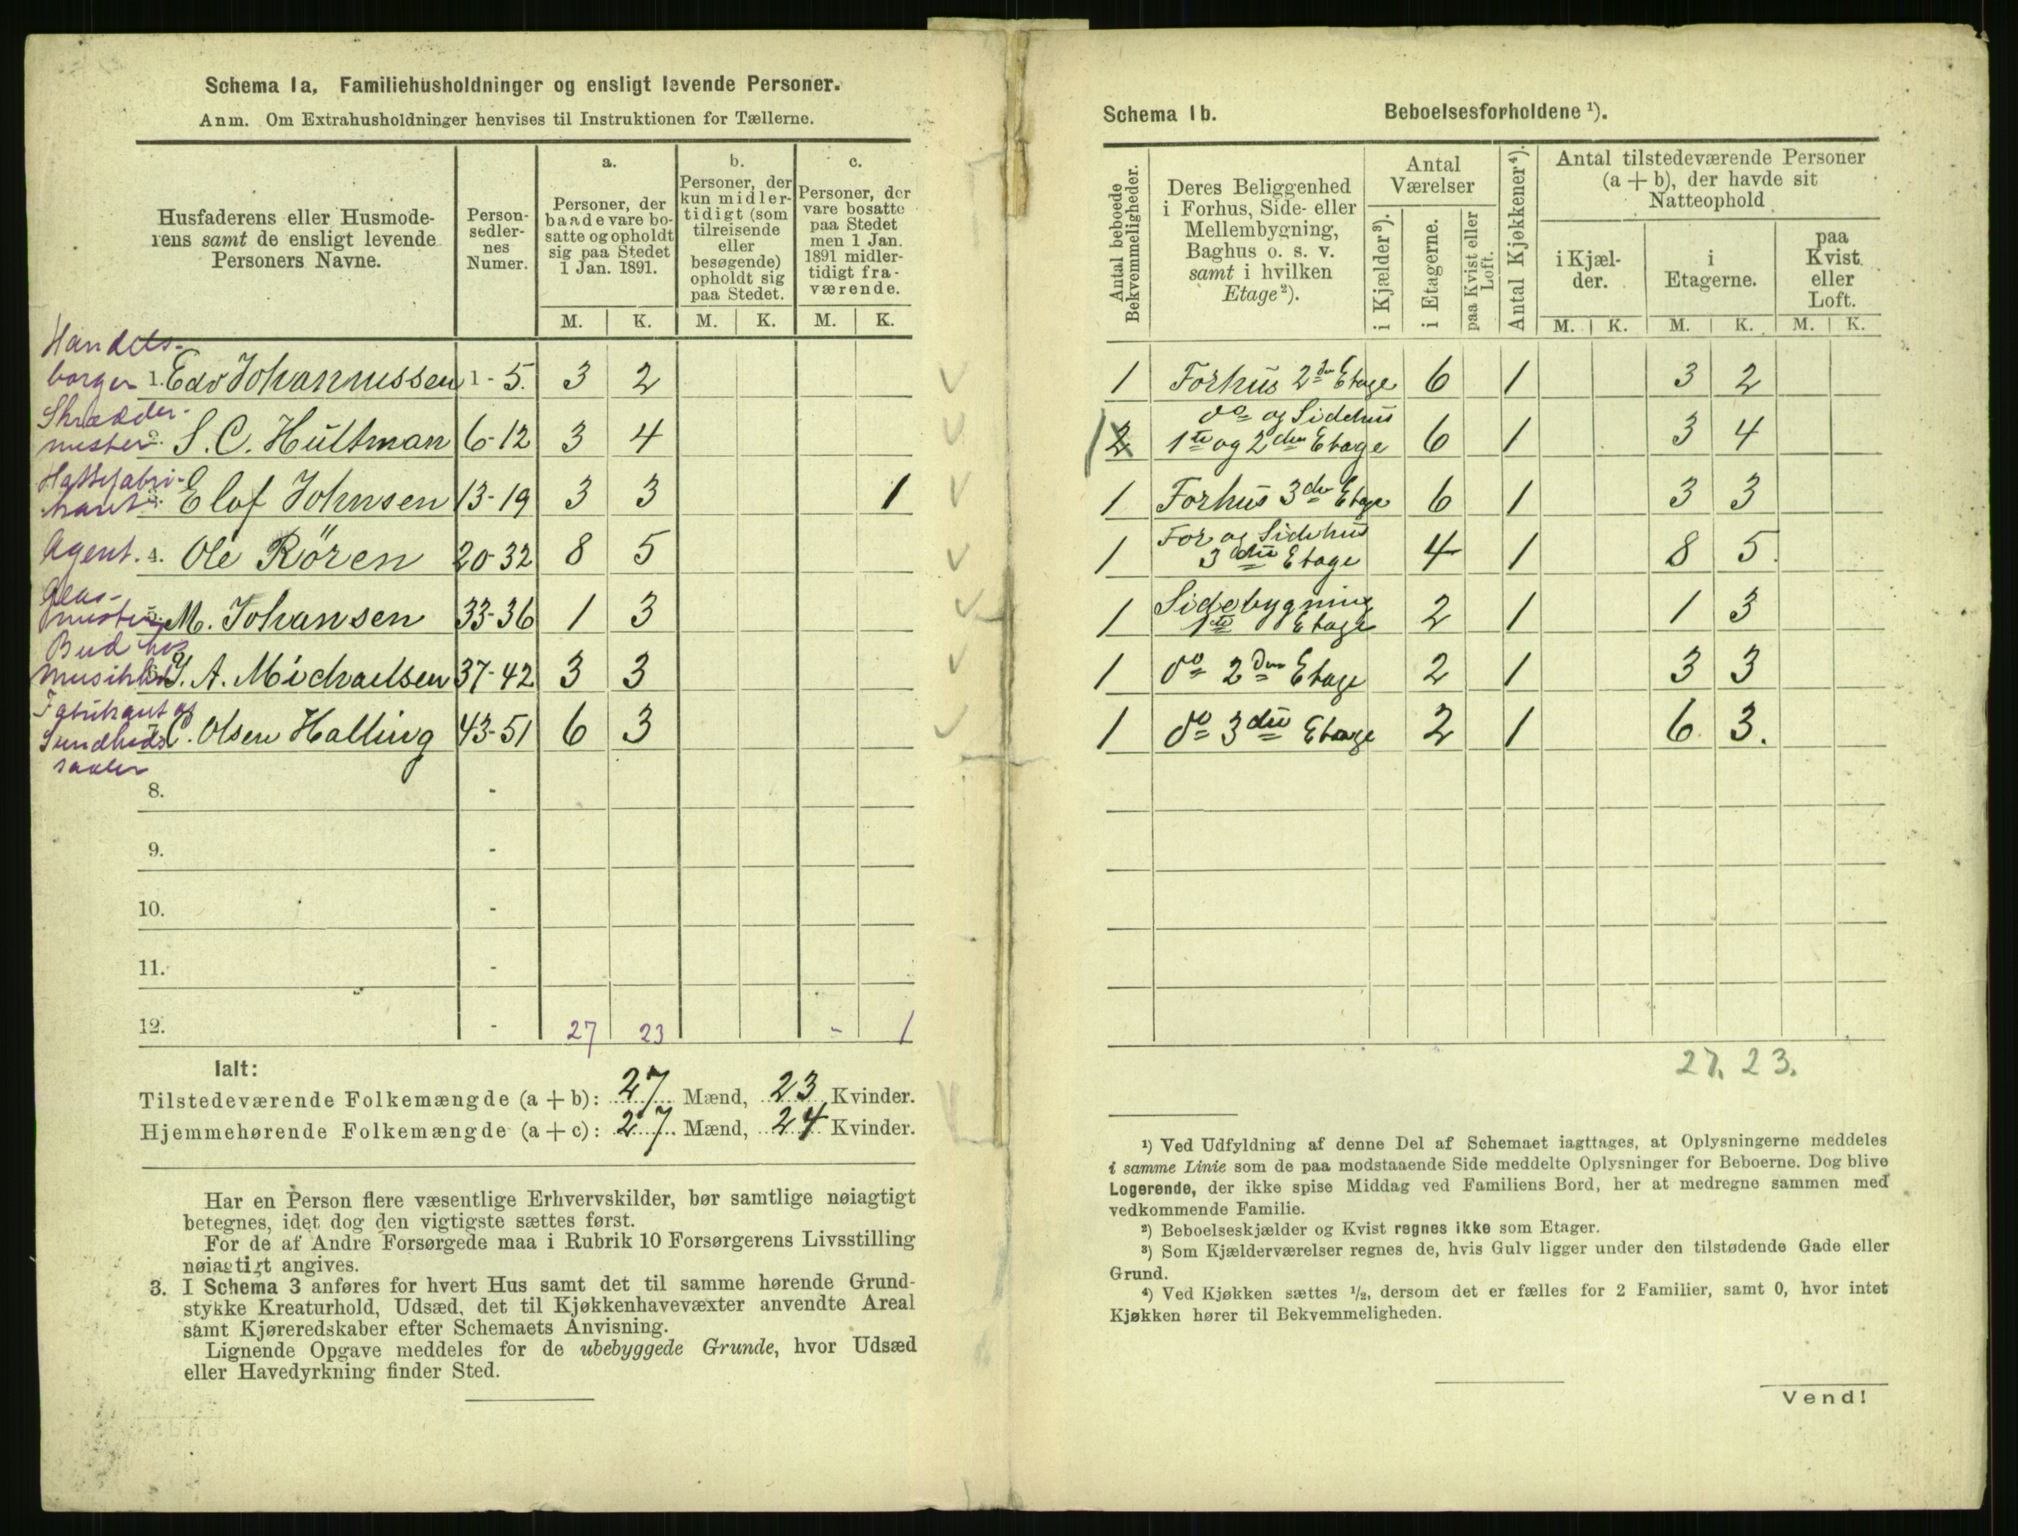 Schema 1a. Familiehusholdninger og ensligt levende Personer.
Anm. Om Extrahusholdninger henvises til Instruktionen for Tællerne.
Husfaderens eller Husmoderens samt de ensligt levende Personers Navne.
Personsedlernes Numer.
a.
Personer, der baade vare bosatte og opholdt sig paa Stedet 1 Jan. 1891.
b.
Personer, der kun midlertidigt (som tilreisende eller besøgende) opholdt sig paa Stedet.
c.
Personer, der vare bosatte paa Stedet men 1 Jan. 1891 midlertidigt fraværende.
M. K. M. K. M. K.
Handels-
borger 1. Edv Johannessen 1-5. 3 2
Skrædder-
mester 2. S. C. Hultman 6-12 3 4
Hattefabri-
kant 3. Elof Johnsen 13-19 3 3 1
Agent. 4. Ole Rören 20-32 8 5
M. Johansen 33-36 1 3
Bud hos
A. Michaelsen 37-42 3 3
Fabrikant af
Sundheds C. Olsen Halling 43-51 6 3
8. -
9. -
10. -
11. -
12. - 27 23 - 1
Ialt:
Tilstedeværende Folkemængde (a + b): 27 Mænd, 23 Kvinder.
Hjemmehørende Folkemængde (a + c): 27 Mænd, 24 Kvinder.
Har en Person flere væsentlige Erhvervskilder, bør samtlige nøiagtigt
betegnes, idet dog den vigtigste sættes først.
For de af Andre Forsørgede maa i Rubrik 10 Forsørgerens Livsstilling
nøiagtigt angives.
3. I Schema 3 anføres for hvert Hus samt det til samme hørende Grund-
stykke Kreaturhold, Udsæd, det til Kjøkkenhavevæxter anvendte Areal
samt Kjøreredskaber efter Schemaets Anvisning.
Lignende Opgave meddeles for de ubebyggede Grunde, hvor Udsæd
eller Havedyrkning finder Sted.
Schema 1b. Beboelsesforholdene ¹).
Antal beboede Bekvemmeligheder.
Deres Beliggenhed i Forhus, Side- eller Mellembygning, Baghus o. s. v. samt i hvilken Etage²).
Antal Værelser
i Kjælder³).
i Etagerne.
paa Kvist eller Loft.
Antal Kjøkkener⁴).
Antal tilstedeværende Personer (a + b), der havde sit Natteophold
i Kjælder.
i Etagerne.
paa Kvist eller Loft.
M. K. M. K. M. K.
1 Forhus 2den Etage 6 1 3 2
do og Sidehus
1 2 1te og 2den Etage 6 1 3 4
1 Forhus 3die Etage 6 1 3 3
For og Sidehus
1 3die Etage 4 1 8 5.
Sidebygning
1 1te Etage 2 1 1 3
1 do 2den Etage 2 1 3 3
1 do 3die Etage 2 1 6 3.
27. 23.
¹) Ved Udfyldning af denne Del af Schemaet iagttages, at Oplysningerne meddeles
i samme Linie som de paa modstaaende Side meddelte Oplysninger for Beboerne. Dog blive
Logerende, der ikke spise Middag ved Familiens Bord, her at medregne sammen med
vedkommende Familie.
²) Beboelseskjælder og Kvist regnes ikke som Etager.
³) Som Kjælderværelser regnes de, hvis Gulv ligger under den tilstødende Gade eller
Grund.
⁴) Ved Kjøkken sættes ½, dersom det er fælles for 2 Familier, samt 0, hvor intet
Kjøkken hører til Bekvemmeligheden.
Vend!